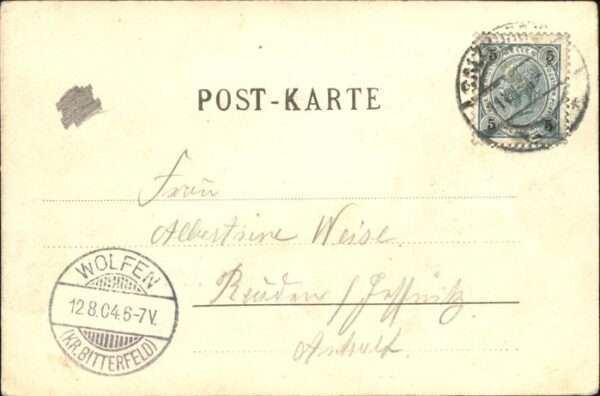 POST-KARTE
5 5
5 5
Frau
Albertine Weise.
Reuden / Jeßnitz
Anhalt.
WOLFEN
12.8.04.6-7V.
(KR.BITTERFELD)